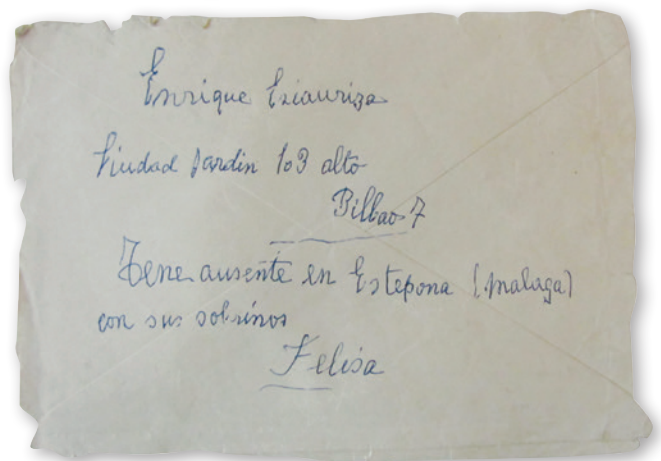 Enrique Eziaurriza
Ciudad Jardin 103 alto
Bilbao 7
Tene ausente en Estepona (malaga)
con sus sobrinos
Felisa